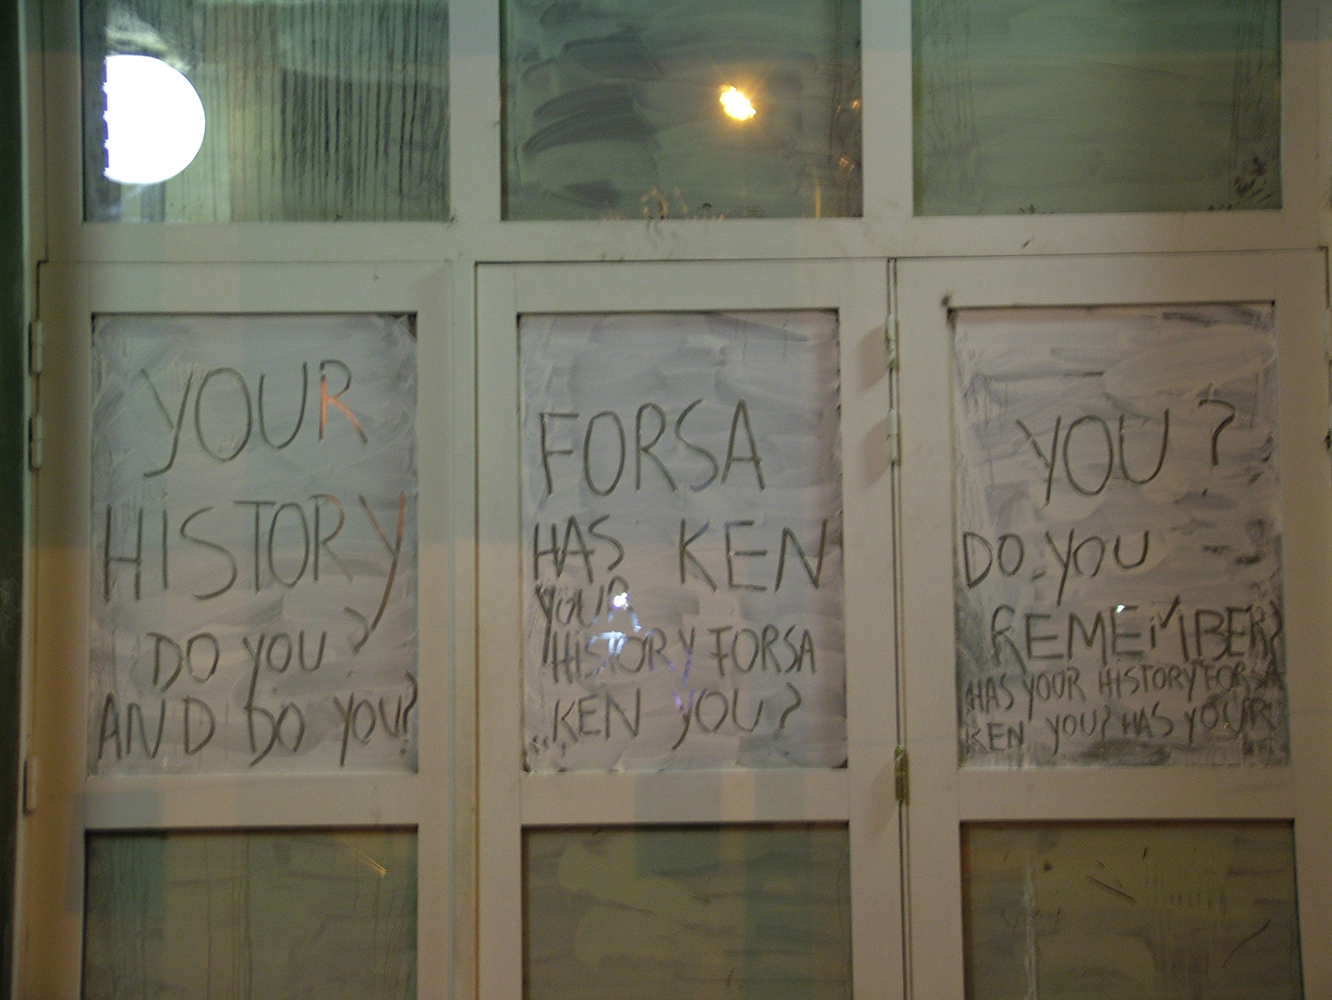 YOUR
HISTORY
DO YOU?
AND DO YOU?
FORSA
HAS KEN
YOUR
HISTORY FORSA
KEN YOU?
YOU?
DO YOU
REMEMBER?
HAS YOUR HISTORY FORSA
KEN YOU? HAS YOUR